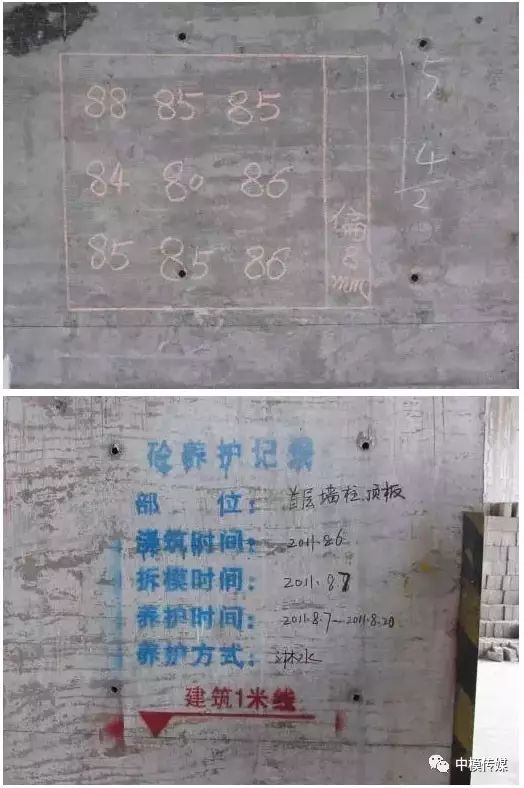 88 85 85
84 80 86
85 85 86
偏
8
mm
5
4
2
砼养护记录
部 位: 首层墙柱顶板
浇筑时间: 2011.8.6
拆模时间: 2011.8.7
养护时间: 2011.8.7—2011.8.20
养护方式: 淋水
建筑1米线
中模传媒